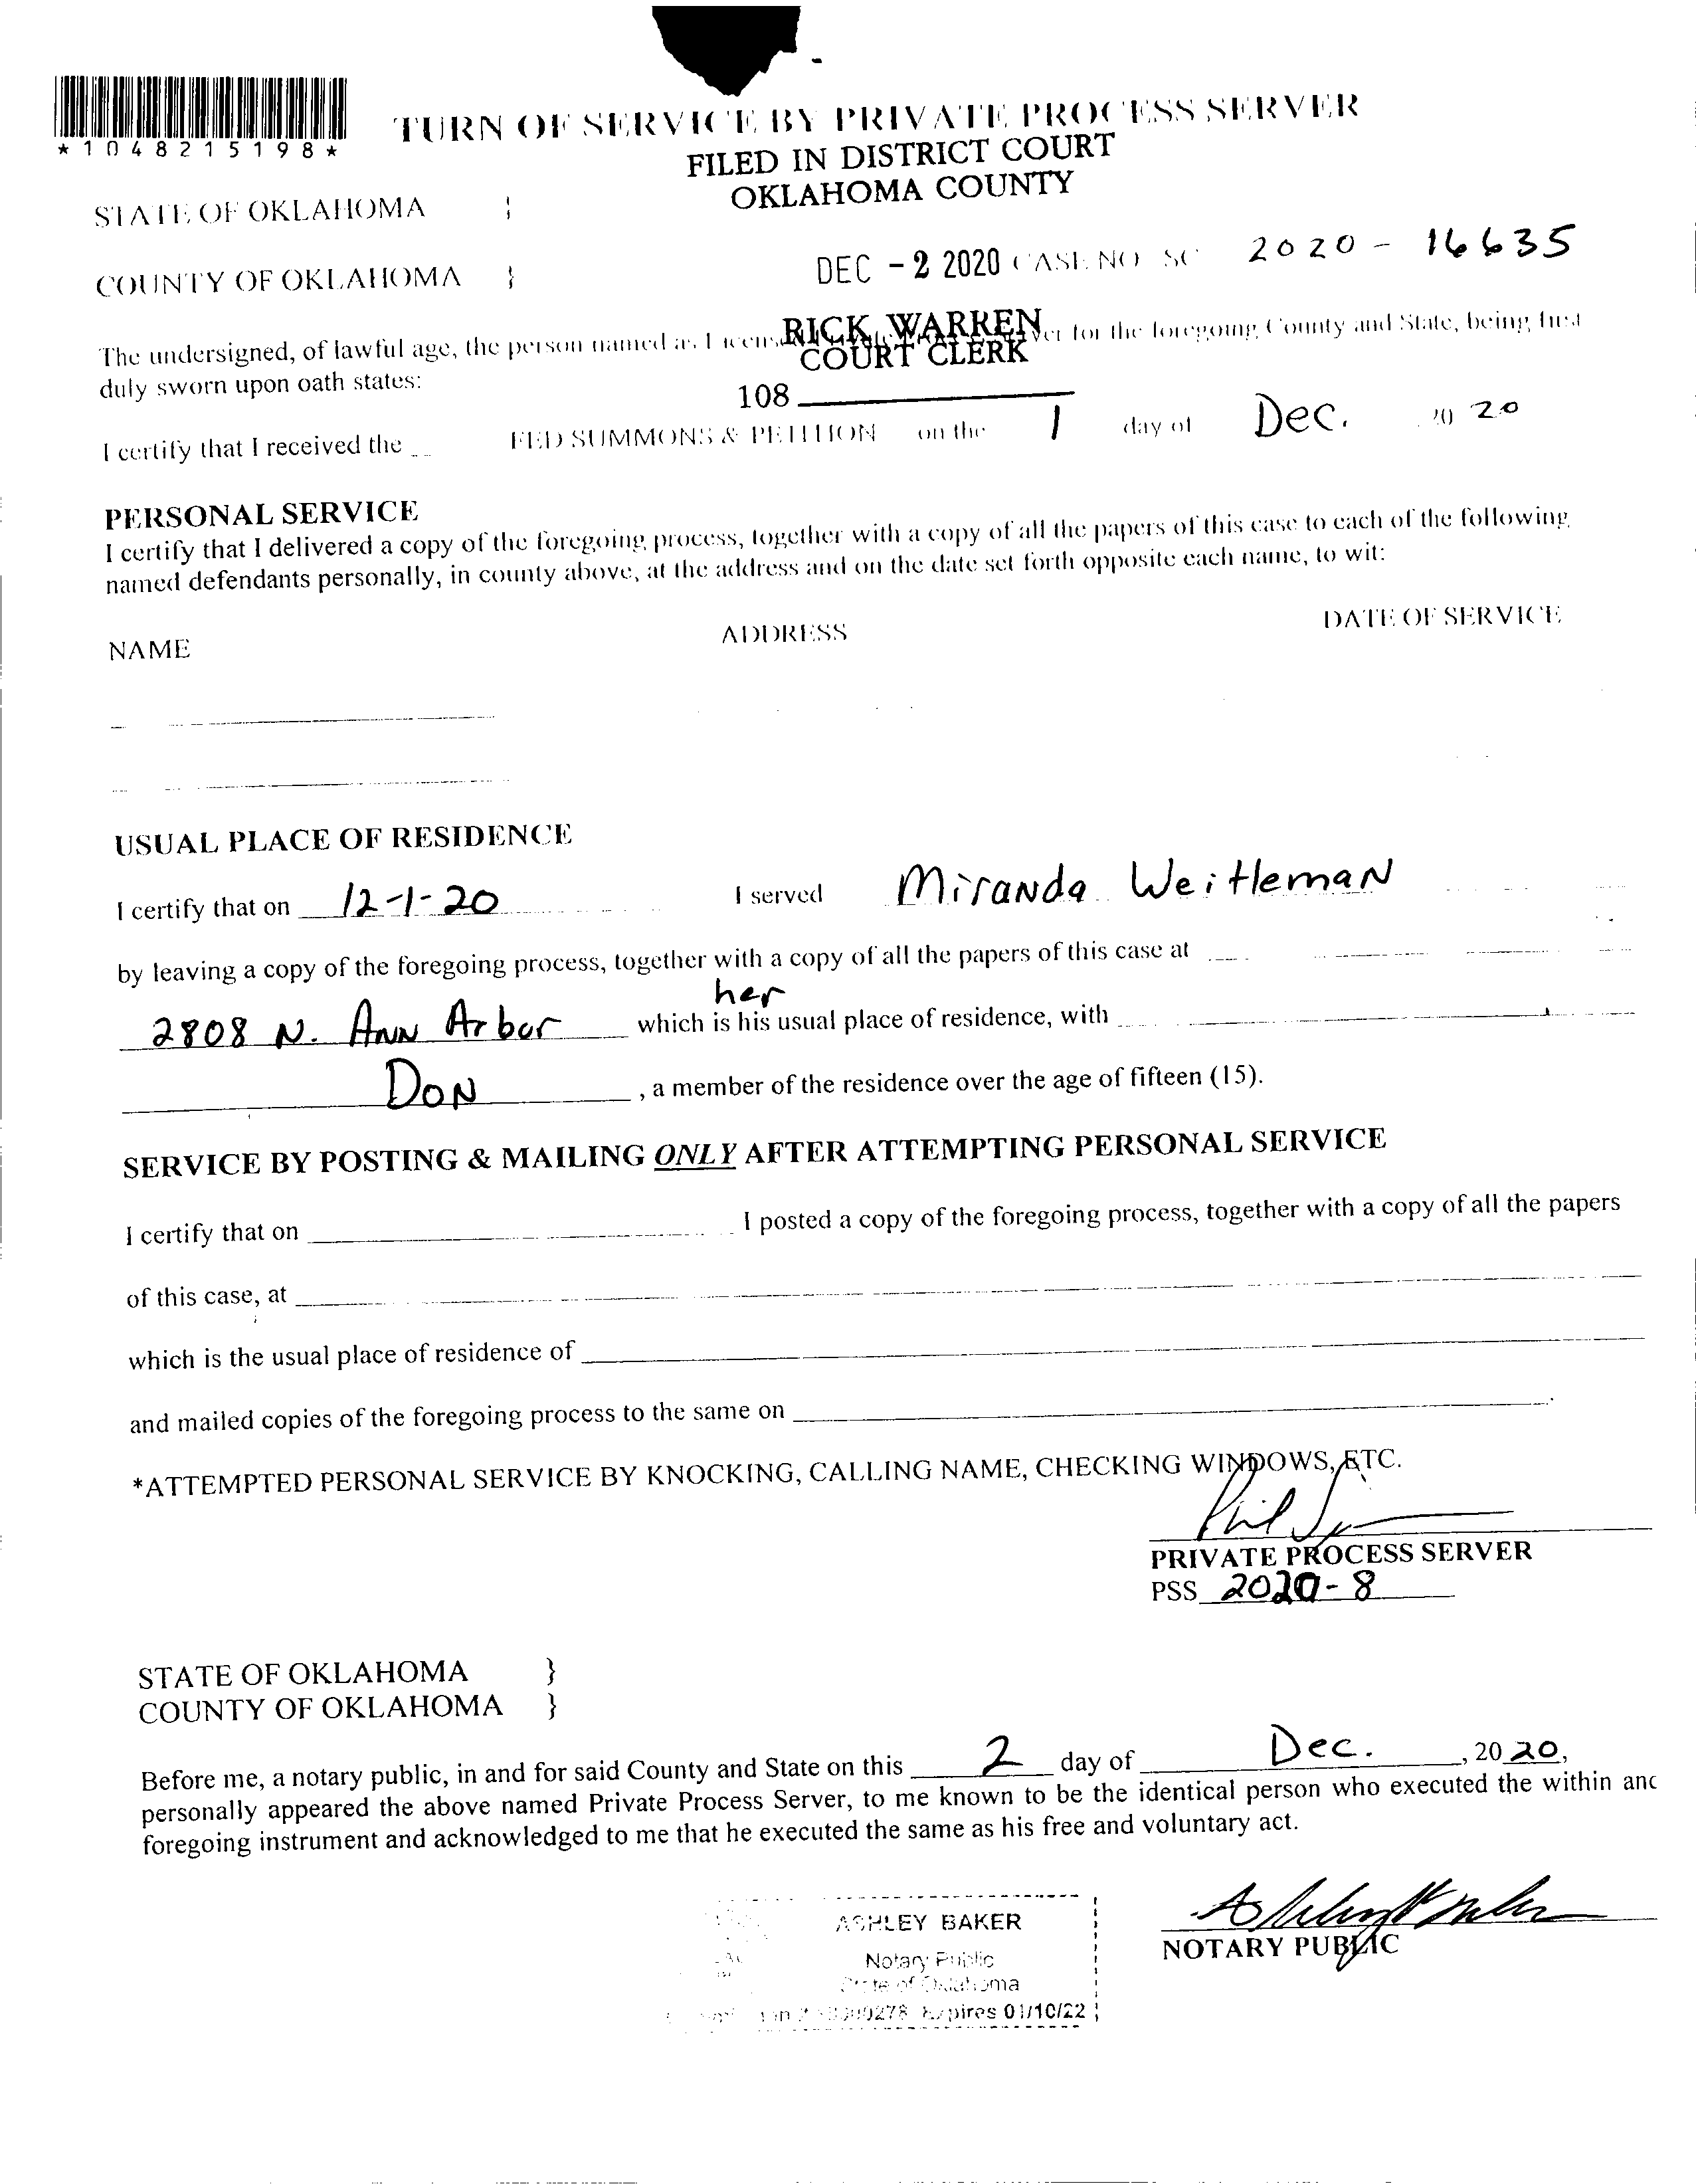 *1048215198*
TURN OF SERVICE BY PRIVATE PROCESS SERVER
FILED IN DISTRICT COURT
OKLAHOMA COUNTY
STATE OF OKLAHOMA }
DEC -2 2020 CASE NO SC 2020 - 16635
COUNTY OF OKLAHOMA }
RICK WARREN
The undersigned, of lawful age, the person named as for the foregoing County and State, being first
COURT CLERK
duly sworn upon oath states:
108
I certify that I received the FED SUMMONS & PETITION on the 1 day of Dec. 20 20
PERSONAL SERVICE
I certify that I delivered a copy of the foregoing process, together with a copy of all the papers of this case to each of the following
named defendants personally, in county above, at the address and on the date set forth opposite each name, to wit:
NAME ADDRESS DATE OF SERVICE
USUAL PLACE OF RESIDENCE
I certify that on 12-1-20 I served Miranda Weitleman
by leaving a copy of the foregoing process, together with a copy of all the papers of this case at
her
2808 N. Ann Arbor which is his usual place of residence, with
Don, a member of the residence over the age of fifteen (15).
SERVICE BY POSTING & MAILING ONLY AFTER ATTEMPTING PERSONAL SERVICE
I certify that on I posted a copy of the foregoing process, together with a copy of all the papers
of this case, at
which is the usual place of residence of
and mailed copies of the foregoing process to the same on .
*ATTEMPTED PERSONAL SERVICE BY KNOCKING, CALLING NAME, CHECKING WINDOWS, ETC.
PRIVATE PROCESS SERVER
PSS 2020-8
STATE OF OKLAHOMA }
COUNTY OF OKLAHOMA }
Before me, a notary public, in and for said County and State on this 2 day of Dec. , 20 20,
personally appeared the above named Private Process Server, to me known to be the identical person who executed the within anc
foregoing instrument and acknowledged to me that he executed the same as his free and voluntary act.
ASHLEY BAKER
NOTARY PUBLIC
Notary Public
State of Oklahoma
Expires 01/10/22